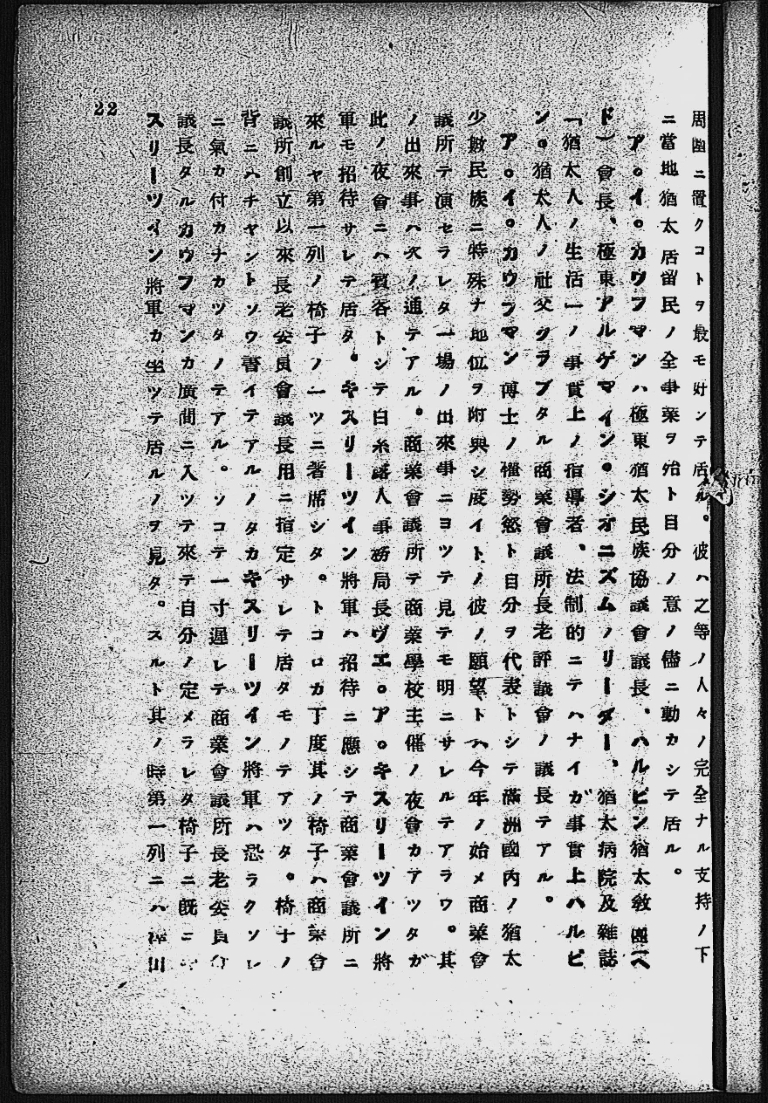 周圍ニ置クコトヲ最モ好ンテ居ル。彼ハ之等ノ人々ノ完全ナル支持ノ下
ニ當地猶太居留民ノ全事業ヲ殆ト自分ノ意ノ儘ニ動カシテ居ル。
ア。イ。カウフマンハ極東猶太民族協議會議長、ハルビン猶太敎團(ヘ
ド)會長、極東アルゲマイン。シオニズムノリーダー、猶太病院及雜誌
「猶太人ノ生活」ノ事實上ノ指導者、法制的ニテハナイガ事實上ハルビ
ン。猶太人ノ社交クラブタル商業會議所長老評議會ノ議長テアル。
ア。イ。カウフマン博士ノ權勢慾ト自分ヲ代表トシテ滿洲國内ノ猶太
少數民族ニ特殊ナ地位ヲ附與シ度イトノ彼ノ願望トハ今年ノ始メ商業會
議所テ演セラレタ一場ノ出來事ニヨツテ見テモ明ニサレルテアラウ。其
ノ出來事ハ次ノ通テアル。商業會議所テ商業學校主催ノ夜會カアツタガ
此ノ夜會ニハ賓客トシテ白系露人事務局長ヴエ。ア。キスリーツイン將
軍モ招待サレテ居タ。キスリーツイン將軍ハ招待ニ應シテ商業會議所ニ
來ルヤ第一列ノ椅子ノ一ツニ著席シタ。トコロカ丁度其ノ椅子ハ商業會
議所創立以來長老委員會議長用ニ指定サレテ居タモノテアツタ。椅子ノ
背ニハチヤントソウ書イテアルノタカキスリーツイン將軍ハ恐ラクソレ
ニ氣カ付カナカツタノテアル。ソコテ一寸遲レテ商業會議所長老委員會
議長タルカウフマンカ廣間ニ入ツテ來テ自分ノ定メラレタ椅子ニ既ニ
スリーツイン將軍カ坐ツテ居ルノヲ見タ。スルト其ノ時第一列ニハ
22